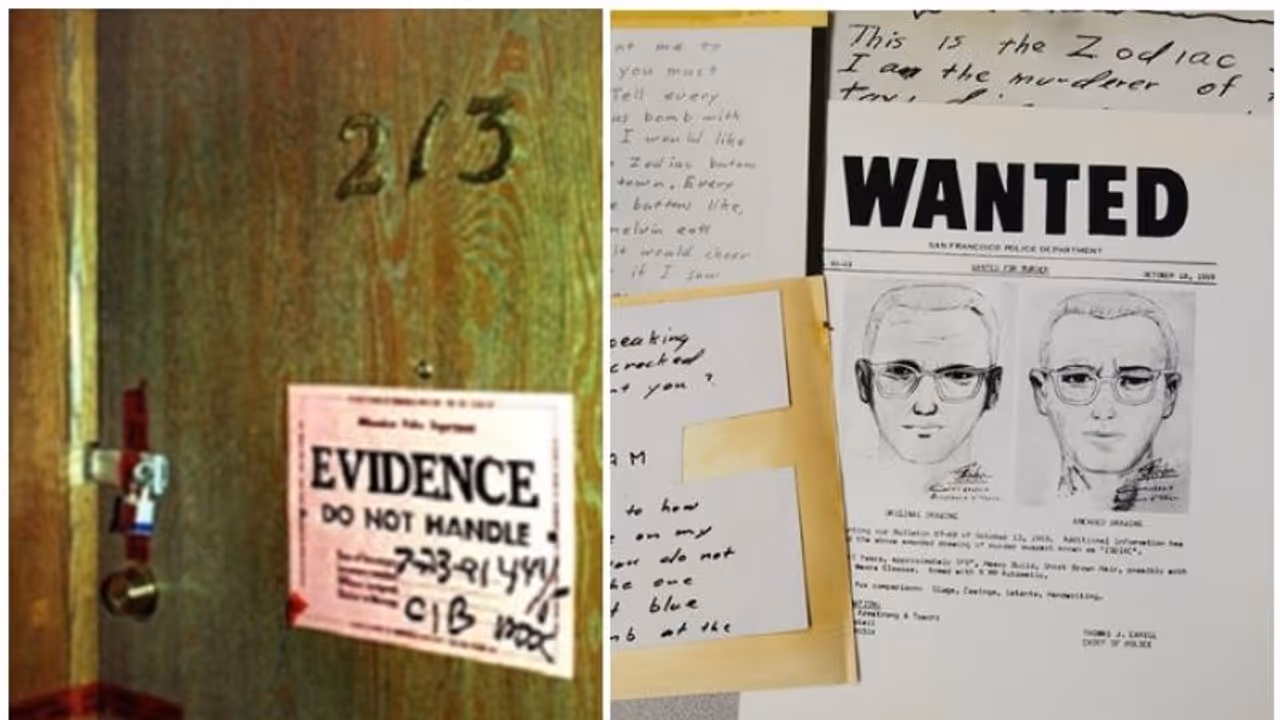 213
Milwaukee Police Department
EVIDENCE
DO NOT HANDLE
7-23-91
CIB
me to
you must
Tell every
bomb with
I would like
Zodiac button
town. Every
button like,
melvin eats
It would cheer
if I saw
peaking
cracked
you?
AM
to how
on my
you do not
one
blue
at the
This is the Zodiac
I am the murderer of
WANTED
SAN FRANCISCO POLICE DEPARTMENT
WANTED FOR MURDER
OCTOBER 18, 1969
ORIGINAL DRAWING
AMENDED DRAWING
our Bulletin 87-69 of October 13, 1969. Additional information has
the above amended drawing of murder suspect known as "ZODIAC".
Years, approximately 5'8", Heavy Build, Short Brown Hair, possibly with
Glasses. Armed with 9 MM Automatic.
for comparison: Slugs, Casings, Latents, Handwriting.
Armstrong & Toschi
THOMAS J. CAHILL
CHIEF OF POLICE